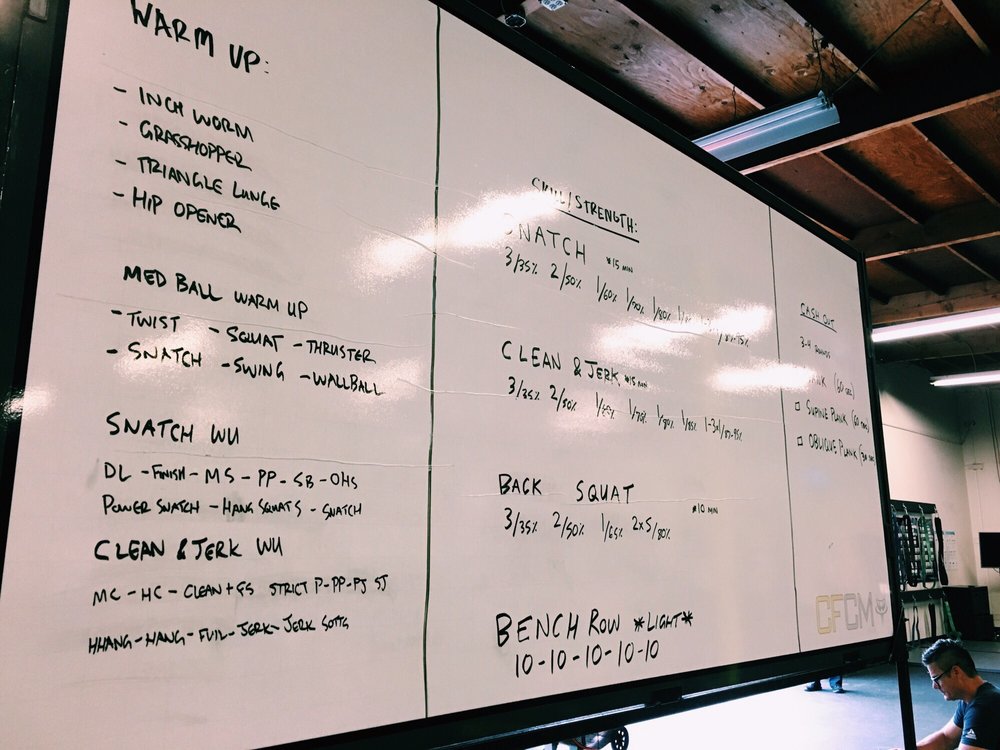 WARM UP:
- INCH WORM
- GRASSHOPPER
- TRIANGLE LUNGE
- HIP OPENER
MED BALL WARM UP
- TWIST - SQUAT - THRUSTER
- SNATCH - SWING - WALLBALL
SNATCH WU
DL - FINISH - MS - PP - SB - OHS
POWER SNATCH - HANG SQUATS - SNATCH
CLEAN & JERK WU
MC - HC - CLEAN + FS STRICT P - PP - PJ SJ
HHANG - HANG - FULL - JERK - JERK
SKILL/STRENGTH:
SNATCH *15 MIN
3/35% 2/50% 1/60% 1/70% 1/80%
CLEAN & JERK *15 MIN
3/35% 2/50% 1/70% 1/80% 1/85%
BACK SQUAT *10 MIN
3/35% 2/50% 1/65% 2x5/80%
BENCH ROW *LIGHT*
10-10-10-10-10
CASH OUT
3-4 ROUNDS
(60 SEC)
SUPINE PLANK (60 SEC)
OBLIQUE PLANK
CFCM